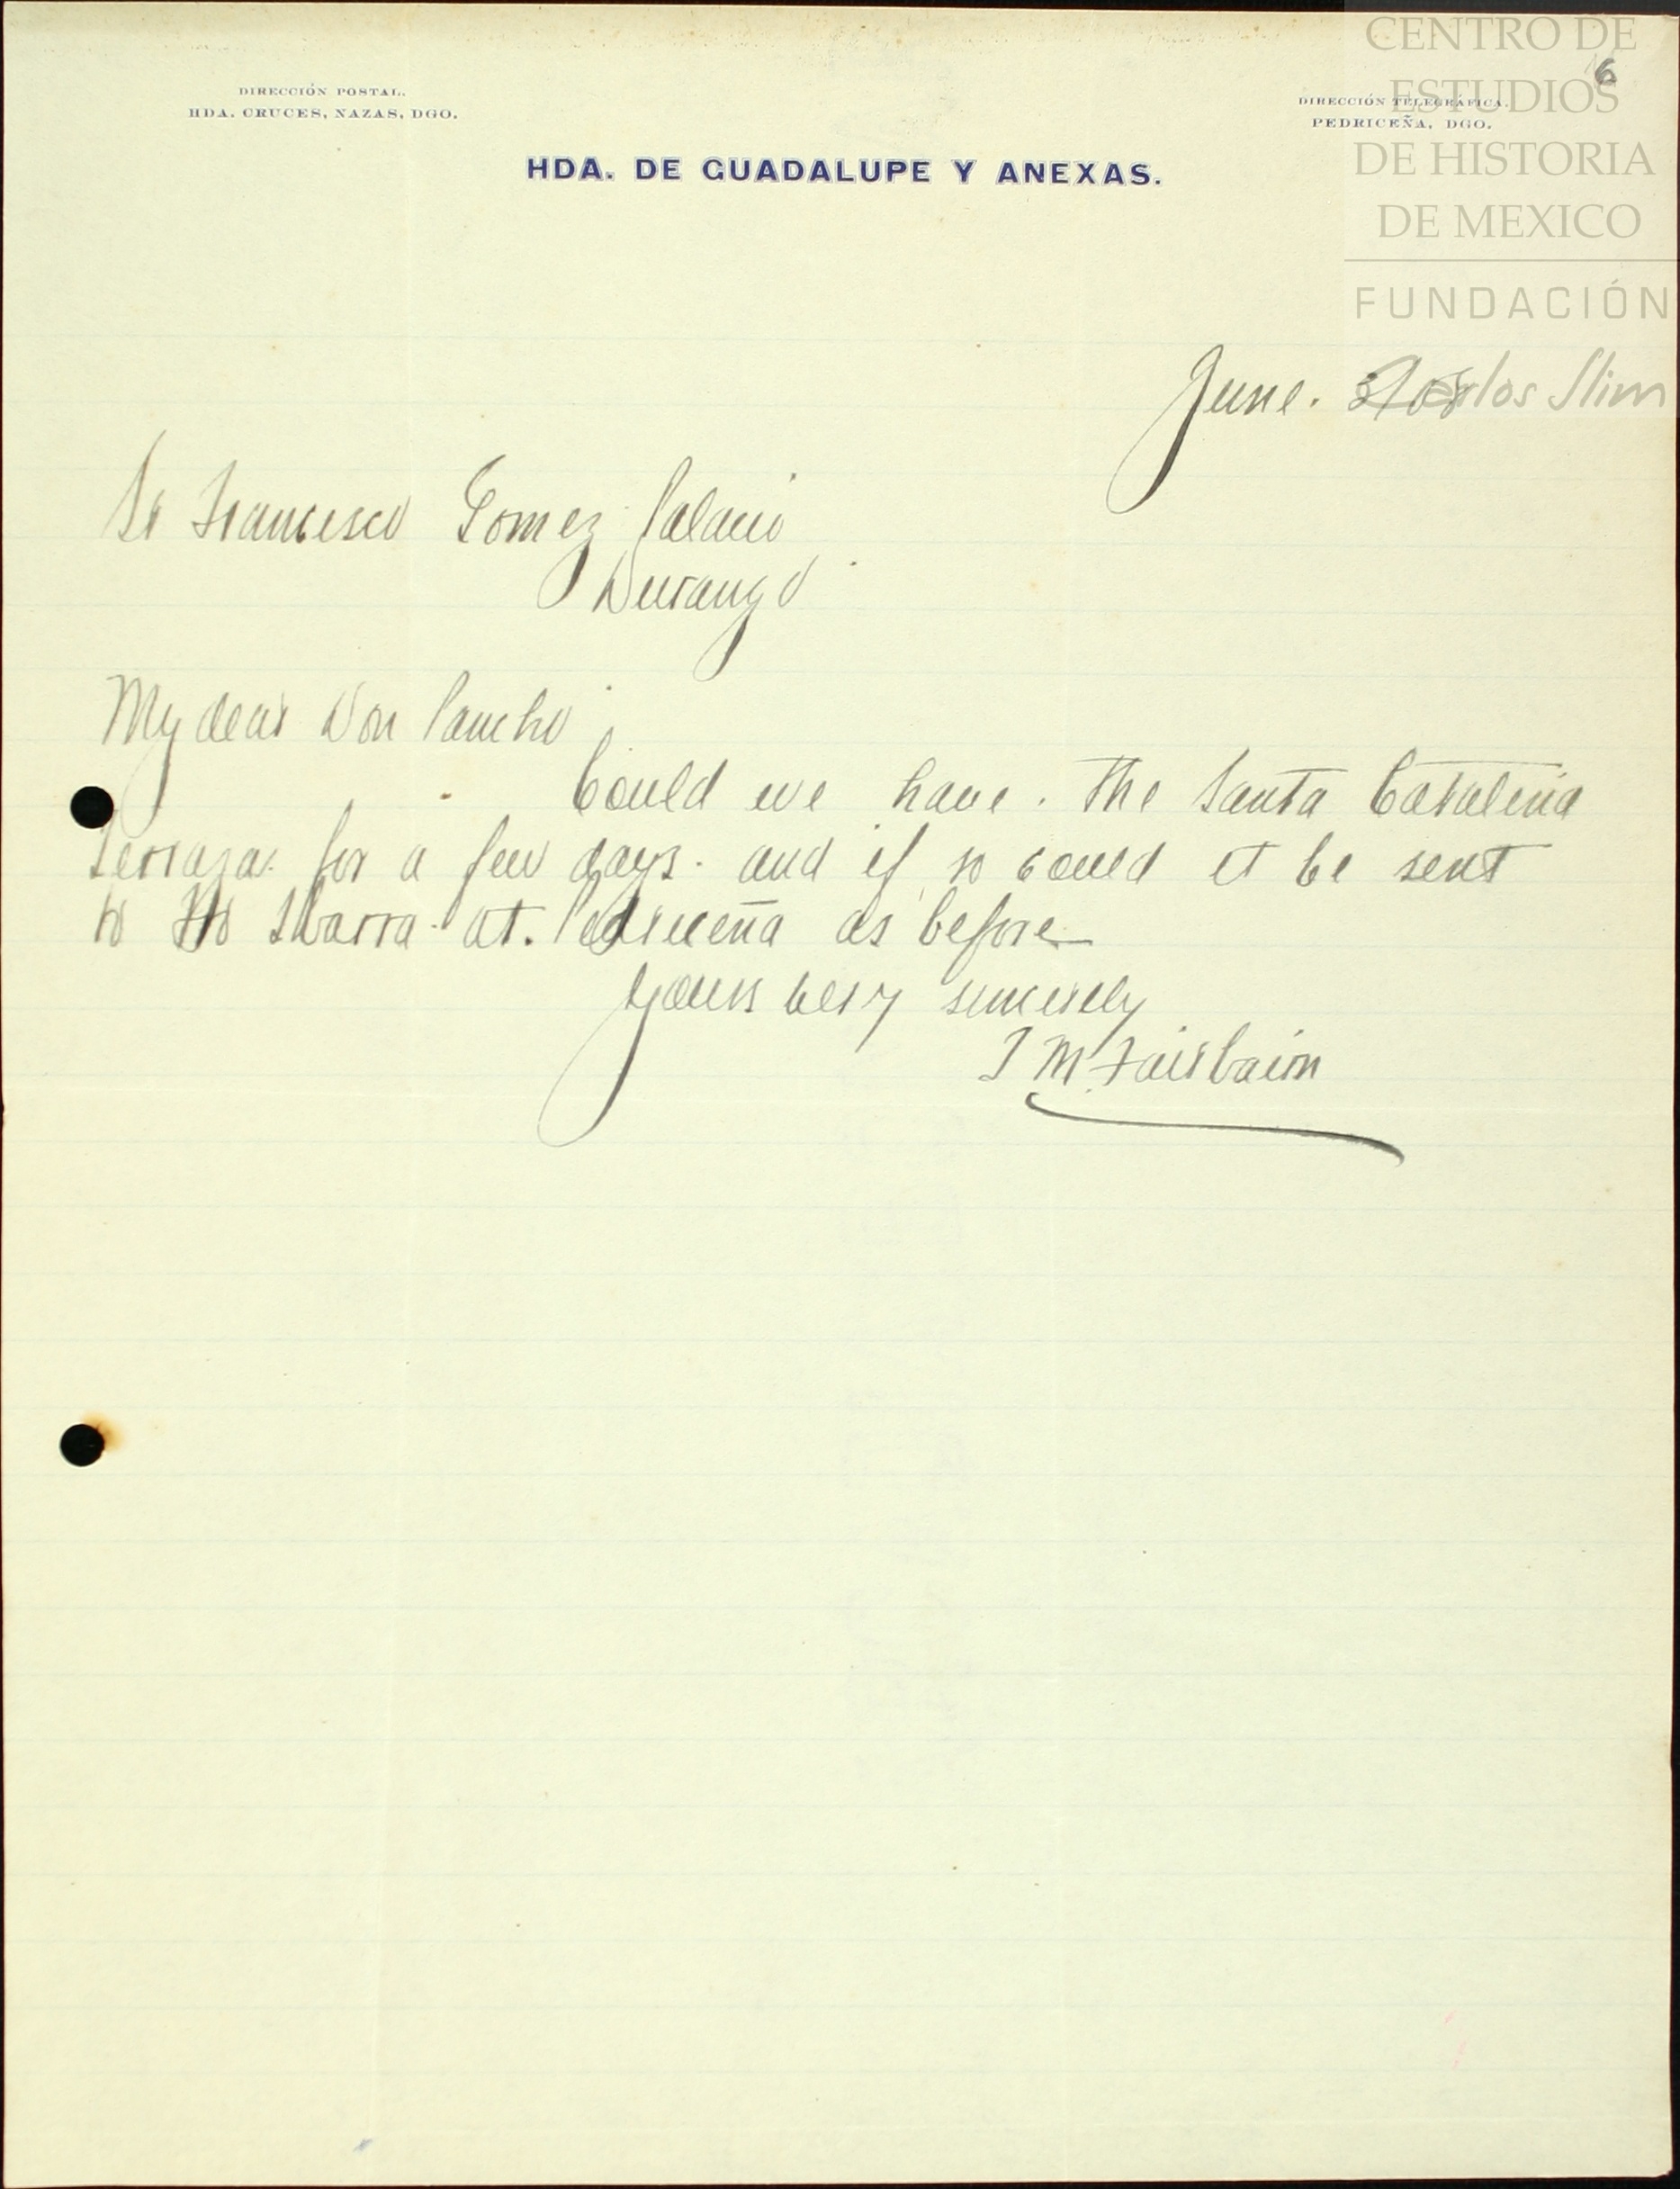 CENTRO DE
ESTUDIOS
DE HISTORIA
DE MEXICO
FUNDACIÓN
Carlos Slim
6
DIRECCIÓN POSTAL.
HDA. CRUCES, NAZAS, DGO.
DIRECCIÓN TELEGRÁFICA.
PEDRICEÑA, DGO.
HDA. DE GUADALUPE Y ANEXAS.
June.
Sr Francisco Gomez Palacio
Durango
My dear Don Pancho
Could we have. The Santa Catalina
Terraza. for a few days. and if so could it be sent
to Ibarra at. Pedriceña as before
Yours very sincerely
M. Fairbairn